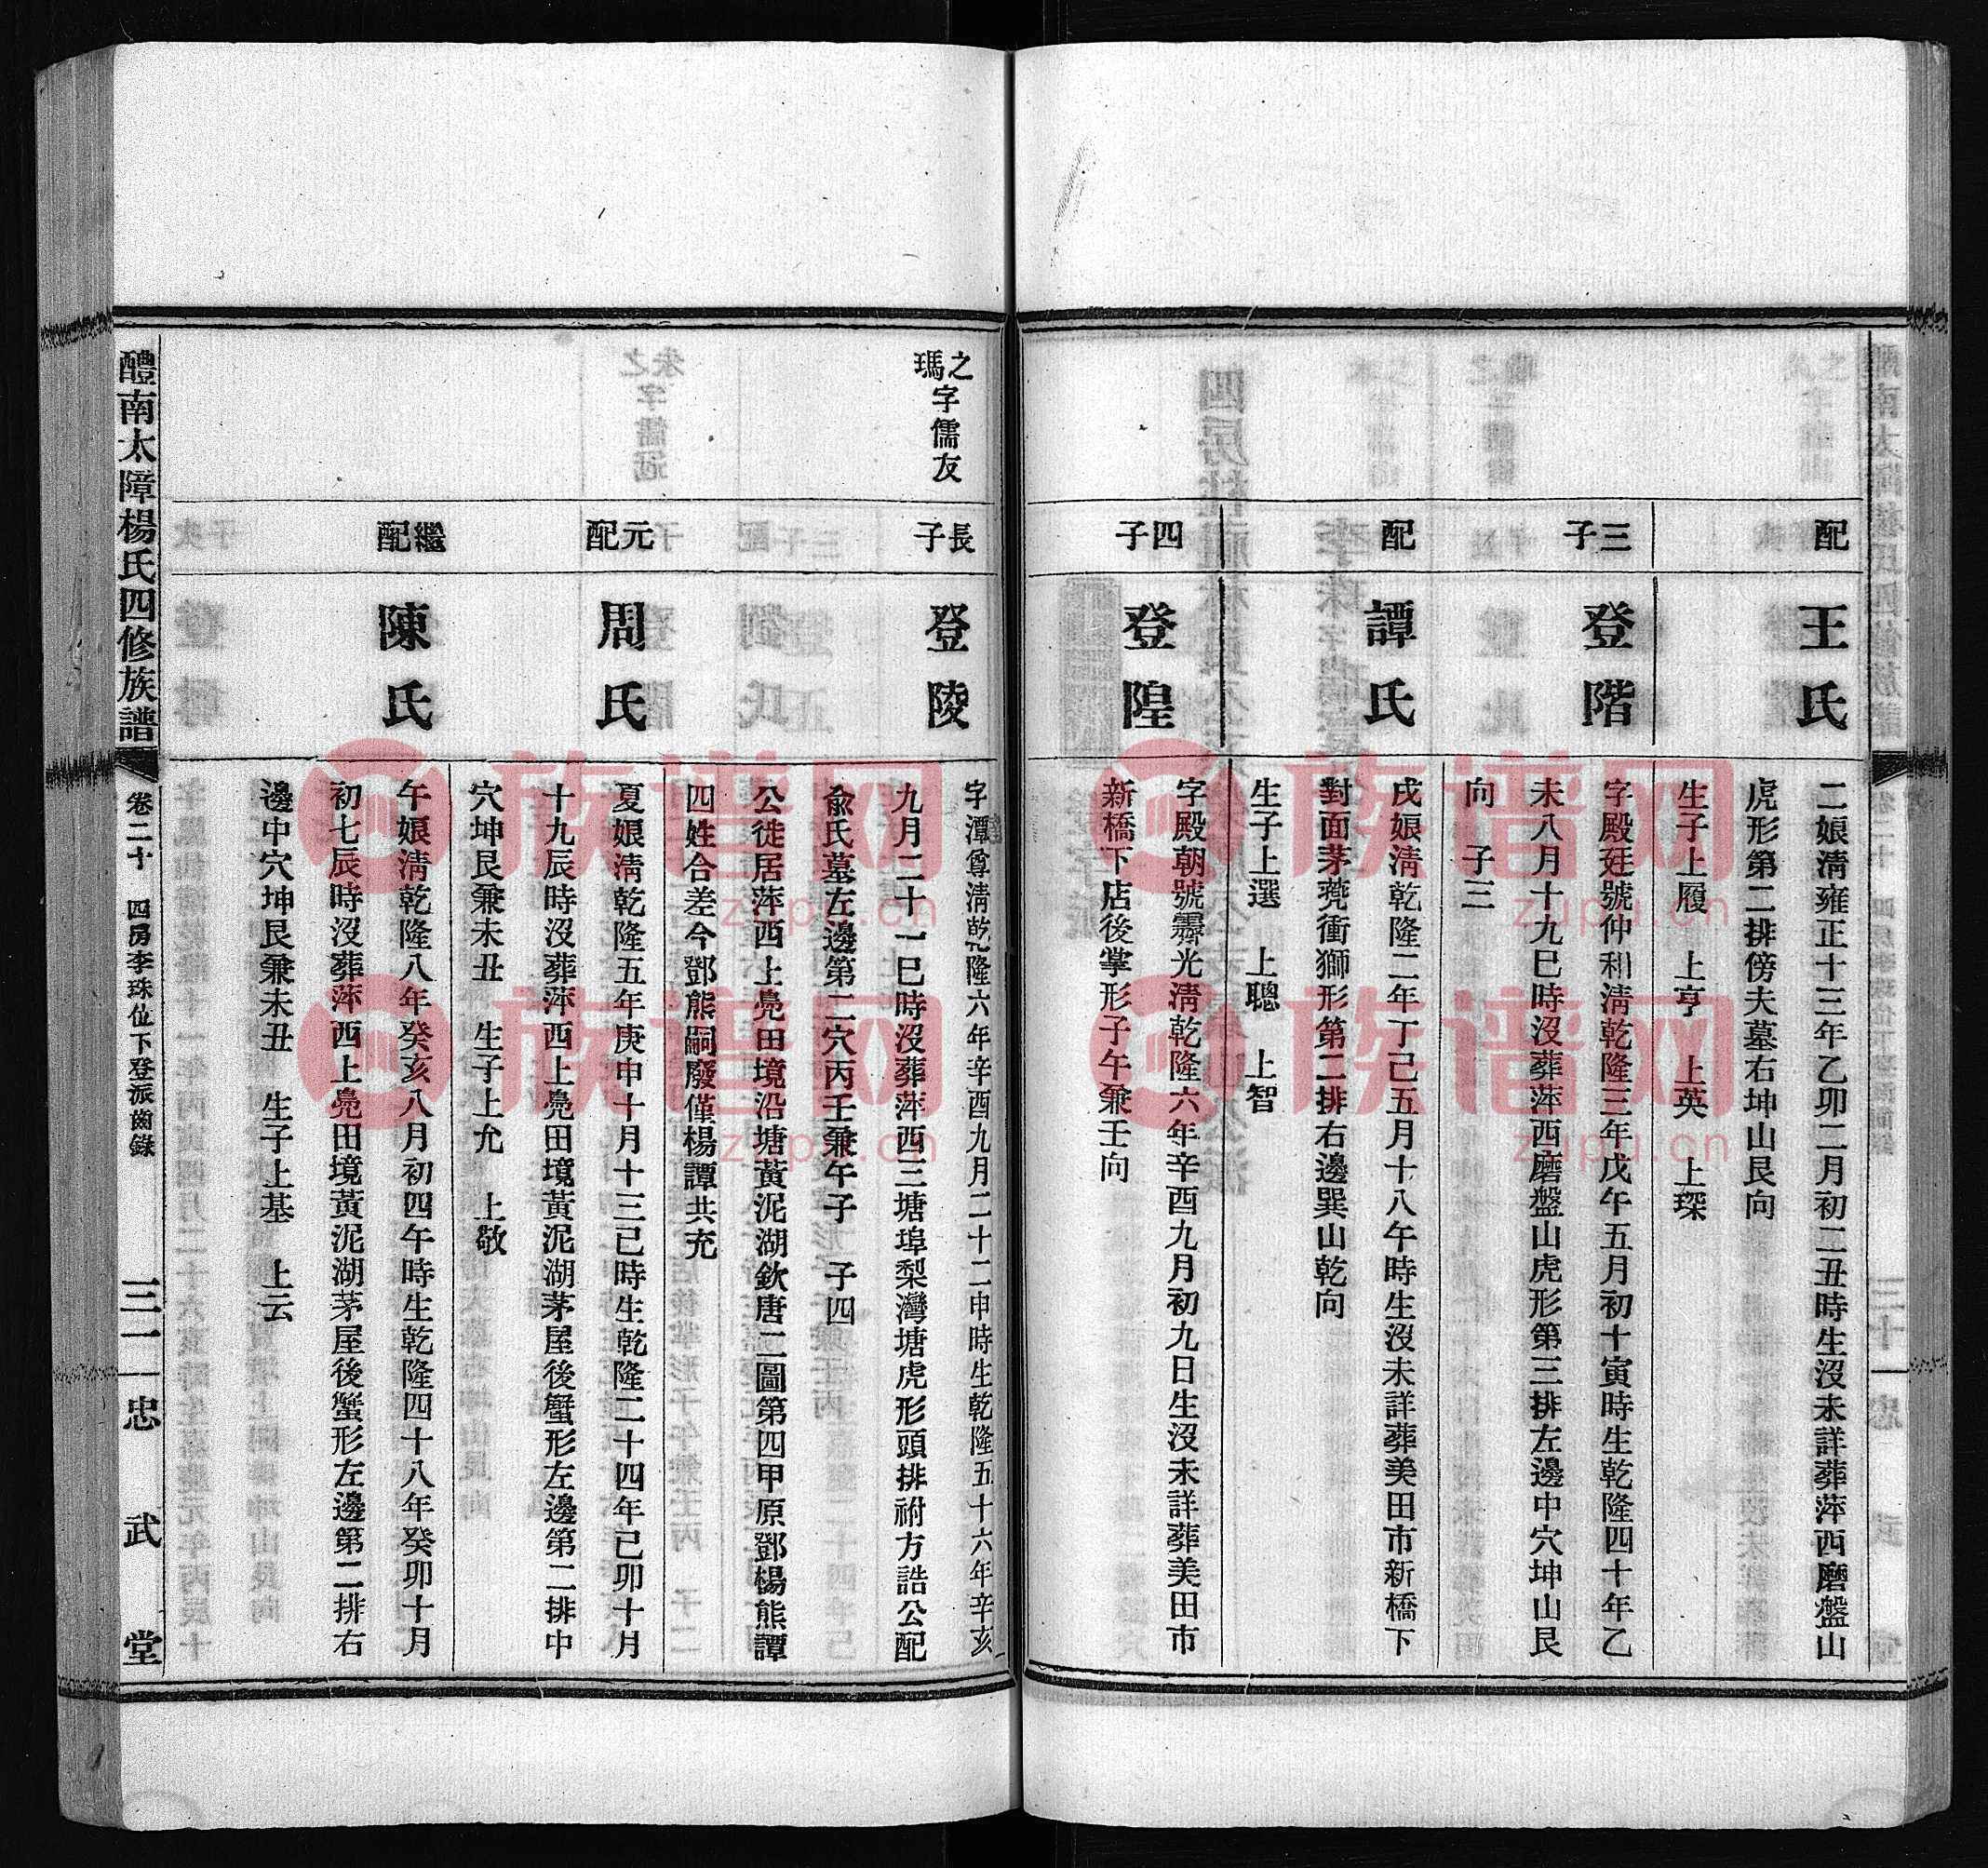 配
王氏
二娘淸雍正十三年乙卯二月初二丑時生沒未詳葬萍西磨盤山
虎形第二排傍夫墓右坤山艮向
生子上履　上亨　上英　上琛
三子
登階
字殿廷號仲和淸乾隆三年戊午五月初十寅時生乾隆四十年乙
未八月十九巳時沒葬萍西磨盤山虎形第三排左邊中穴坤山艮
向　子三
配
譚氏
戌娘淸乾隆二年丁巳五月十八午時生沒未詳葬美田市新橋下
對面茅蕘衝獅形第二排右邊巽山乾向
生子上選　上聰　上智
四子
登隍
字殿朝號霽光淸乾隆六年辛酉九月初九日生沒未詳葬美田市
新橋下店後掌形子午兼壬向
之瑪字儒友
長子
登陵
字潭尊淸乾隆六年辛酉九月二十二申時生乾隆五十六年辛亥
九月二十一巳時沒葬萍西三塘埠梨灣塘虎形頭排祔方誥公配
兪氏墓左邊第二穴丙壬兼午子　子四
公徙居萍西上鳧田境沿塘黃泥湖欽唐二圖第四甲原鄧楊熊譚
四姓合差今鄧熊嗣廢僅楊譚共充
元配
周氏
夏娘淸乾隆五年庚申十月十三巳時生乾隆二十四年己卯十月
十九辰時沒葬萍西上鳧田境黃泥湖茅屋後蟹形左邊第二排中
穴坤艮兼未丑　生子上允　上敬
繼配
陳氏
午娘淸乾隆八年癸亥八月初四午時生乾隆四十八年癸卯十月
初七辰時沒葬萍西上鳧田境黃泥湖茅屋後蟹形左邊第二排右
邊中穴坤艮兼未丑　生子上基　上云
醴南太障楊氏四修族譜
卷二十　四房李珠位下登派齒錄
三十一　忠武堂
族谱网
zupu.cn
族谱网
zupu.cn
族谱网
zupu.cn
族谱网
zupu.cn